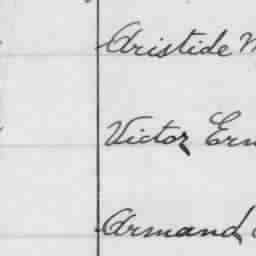 Aristide
Victor
Armand